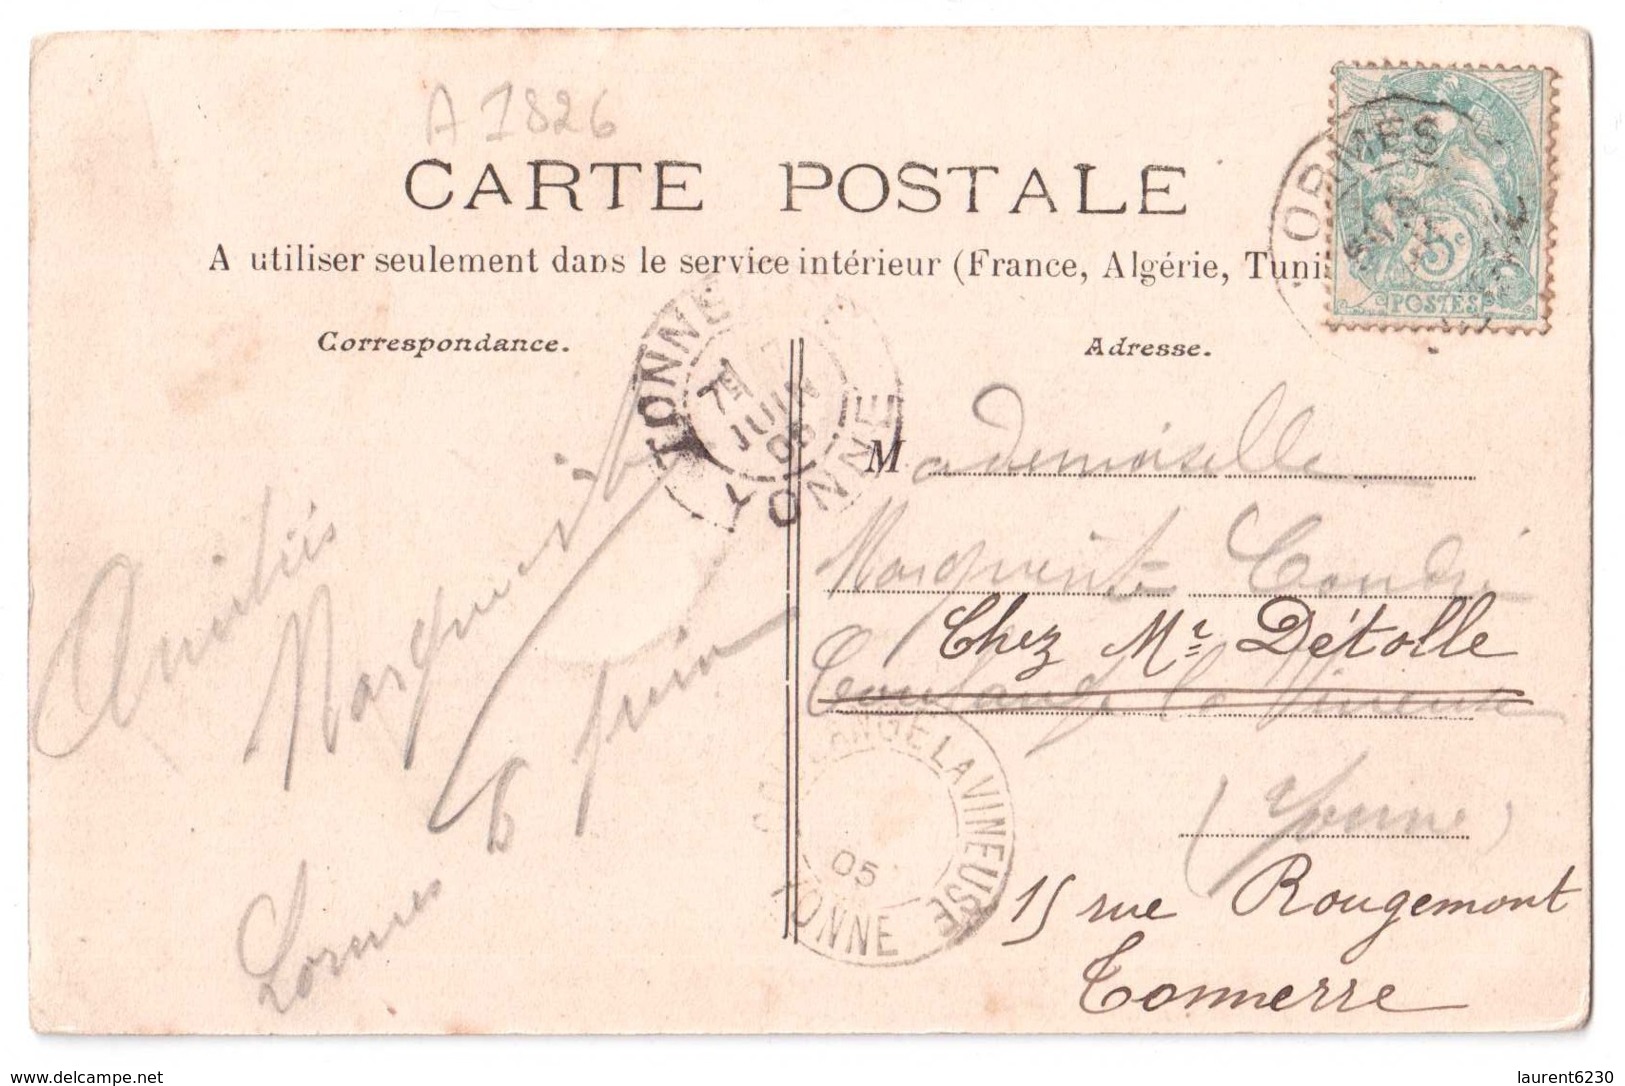 A 1826
CARTE POSTALE
A utiliser seulement dans le service intérieur (France, Algérie, Tuni
Correspondance.
Adresse.
ORMES
5c
POSTES
TONNERRE
7 JUIN 05
YONNE
Mademoiselle
Marguerite Coudri
Chez Mr Détolle
Coulange la Vineuse
(Yonne)
15 rue Rougemont
Tonnerre
Amitiés
Marguerite
Lormes 6 juin
COULANGE LA VINEUSE
05
YONNE
delcampe.net
laurent6230